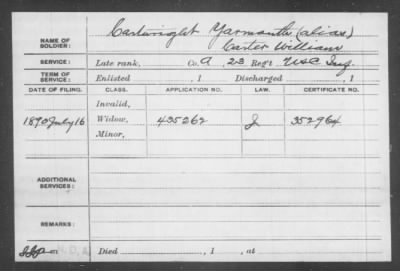 Cartwright Yarmouth (alias)
NAME OF SOLDIER: Carter William
SERVICE: Late rank, Co. A 23 Regt. USC Inf.
TERM OF SERVICE: Enlisted , 1 Discharged , 1
DATE OF FILING. CLASS. APPLICATION NO. LAW. CERTIFICATE NO.
Invalid,
1890 July 16 Widow, 435262 J 352964
Minor,
ADDITIONAL SERVICES:
REMARKS:
Died , 1 , at